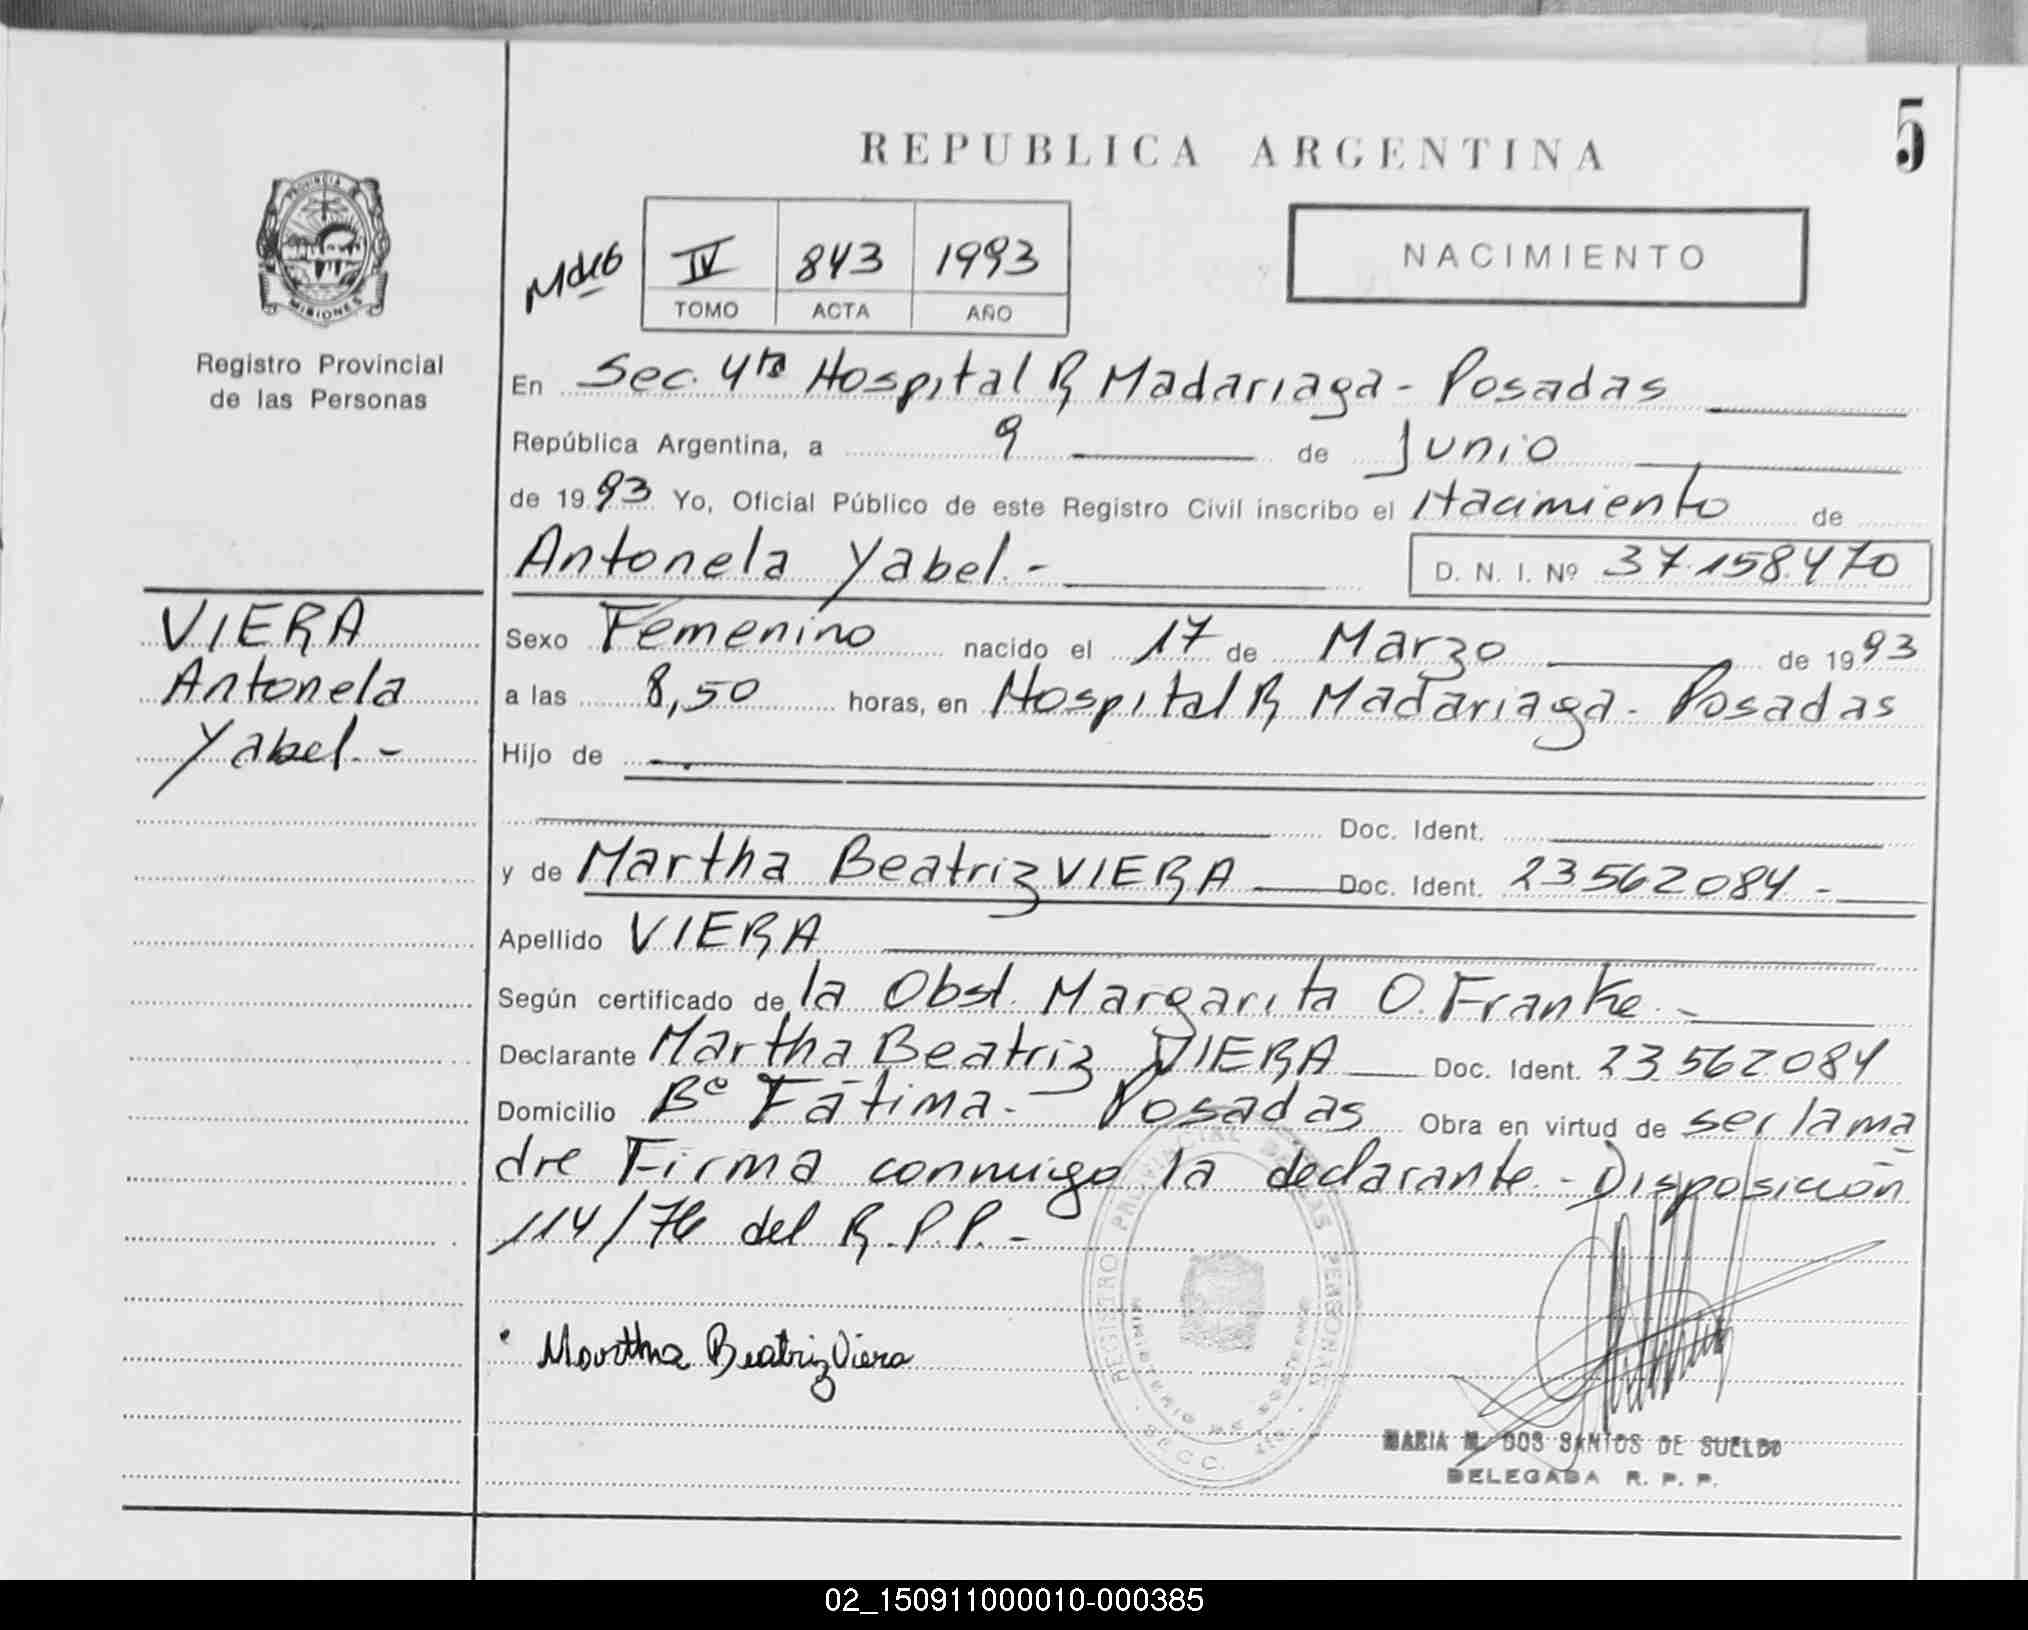 5
REPUBLICA ARGENTINA
PROVINCIA DE
MISIONES
Registro Provincial
de las Personas
IV 843 1993
TOMO ACTA AÑO
NACIMIENTO
En Sec. 4ta Hospital R Madariaga - Posadas
República Argentina, a 9 de Junio
de 1993 Yo, Oficial Público de este Registro Civil inscribo el Nacimiento de
Antonela Yabel.- D. N. I. Nº 37.158.470
VIERA
Antonela
Yabel.-
Sexo Femenino nacido el 17 de Marzo de 1993
a las 8,50 horas, en Hospital R Madariaga - Posadas
Hijo de
Doc. Ident.
y de Martha Beatriz VIERA Doc. Ident. 23.562.084-
Apellido VIERA
Según certificado de la Obst. Margarita O. Franke.-
Declarante Martha Beatriz VIERA Doc. Ident. 23.562.084
Domicilio Bº Fátima.- Posadas Obra en virtud de ser la ma
dre Firma conmigo la declarante.- Disposición
114/76 del R.P.P.-
REGISTRO PROVINCIAL DE LAS PERSONAS
MINISTERIO DE GOBIERNO
Martha Beatriz Viera
MARIA M. DOS SANTOS DE SUELDO
DELEGADA R. P. P.
02_150911000010-000385